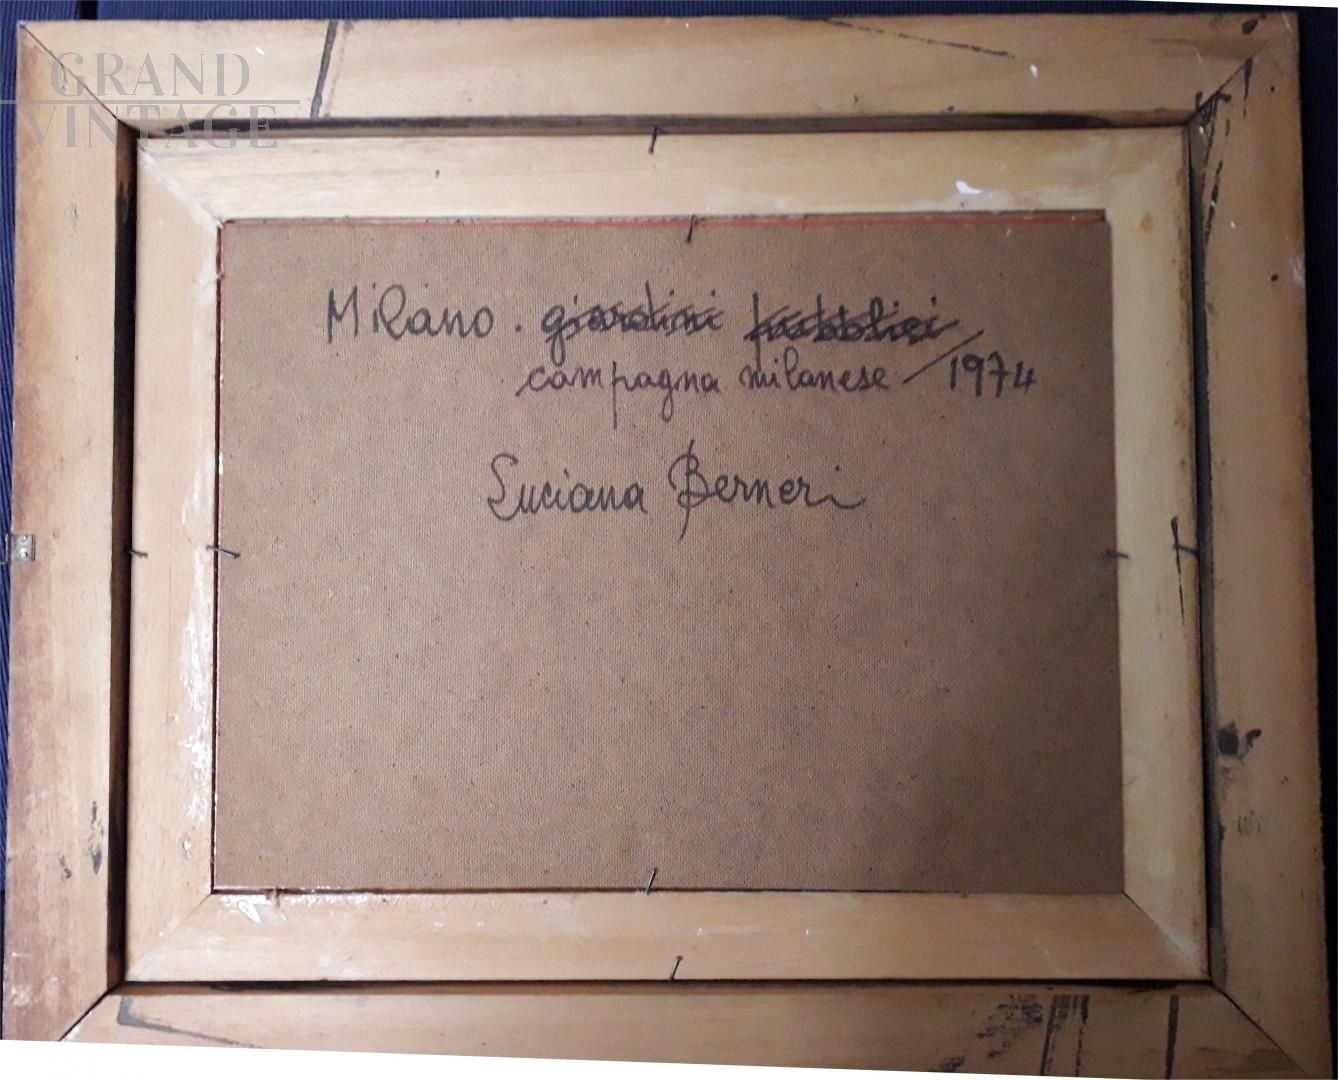 GRAND
VINTAGE
Milano. giardini pubblici
campagna milanese / 1974
Luciana Berneri